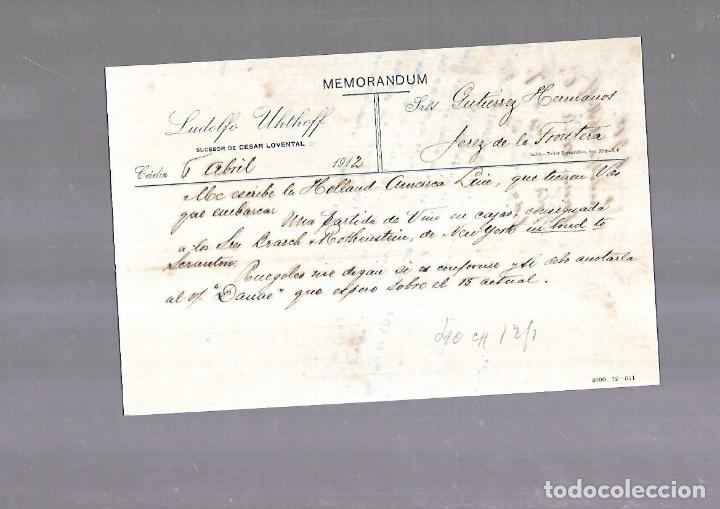 MEMORANDUM
Ludolfo Uhthoff
SUCESOR DE CESAR LOVENTAL
Sres Gutierrez Hermanos
Jerez de la Frontera
Cádiz 6 Abril 1912
Me escribe la Holland America Line, que tienen Vds
que embarcar una partida de Vino en cajas, consignada
a los Sres Brasch & Rothenstein, de New York in bond to
Scranton.
Ruegoles me digan si es conforme y si debo anotarla
al vp. "Danae" que espero sobre el 15 actual.
2000-12-911
todocoleccion.net